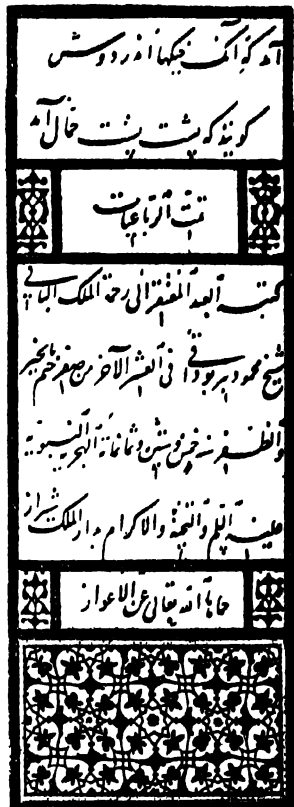 آمد گه آنک خیکها اندر دوش
گویند که پشت پشت حمال آمد
تمت الرباعیات
کتبه العبد المفتقر الی رحمة الملک الباقی
شیخ محمود یربوداقی فی العشر الآخر من صفر ختم بالخیر
والظفر سنه خمس وستین وثمانمائة الهجریه النبویه
علیه السلم والتحیة والاکرام بدار الملک شیراز
حماها الله تعالی عن الاعواز